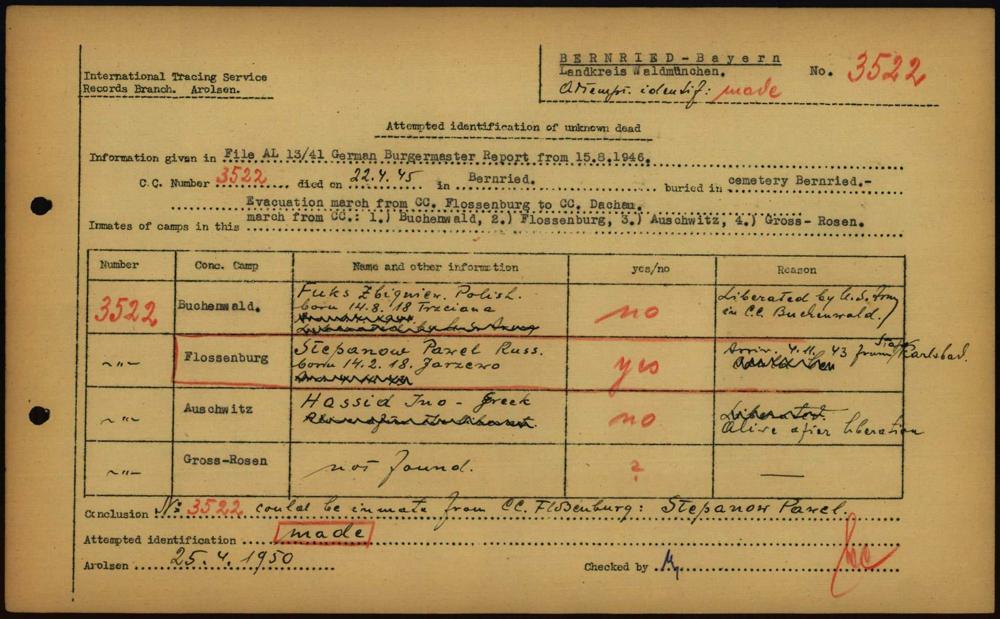 International Tracing Service
Records Branch. Arolsen.
BERNRIED-Bayern
Landkreis Waldmünchen.
Attempt. identif: made
No. 3522
Attempted identification of unknown dead
Information given in File AL 13/41 German Burgermaster Report from 15.8.1946.
C.C. Number 3522 died on 22.4.45 in Bernried. buried in cemetery Bernried.-
Evacuation march from CC. Flossenburg to CC. Dachau.
Inmates of camps in this march from CC.: 1.) Buchenwald, 2.) Flossenburg, 3.) Auschwitz, 4.) Gross-Rosen.
Number Conc. Camp Name and other information yes/no Reason
3522 Buchenwald. Fuks Zbigniew. Polish.
born 14.8.18 Trzciana
no
Liberated by U.S. Army
in CC. Buchenwald.
-"- Flossenburg Stepanow Pawel Russ.
born 14.2.18. Jarzewo
yes
Arriv. 4.11.43 from Karlsbad.
-"- Auschwitz Hassid Ino - Greek
no
Liberated.
Alive after liberation
-"- Gross-Rosen not found. ? —
Conclusion No: 3522 could be inmate from CC. Flossenburg: Stepanow Pawel.
Attempted identification made
Arolsen 25.4.1950 Checked by